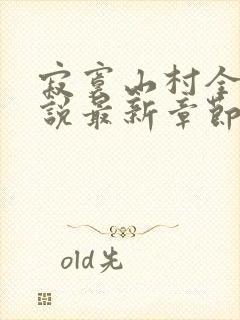 寂寞山村全
說最新章節
old先